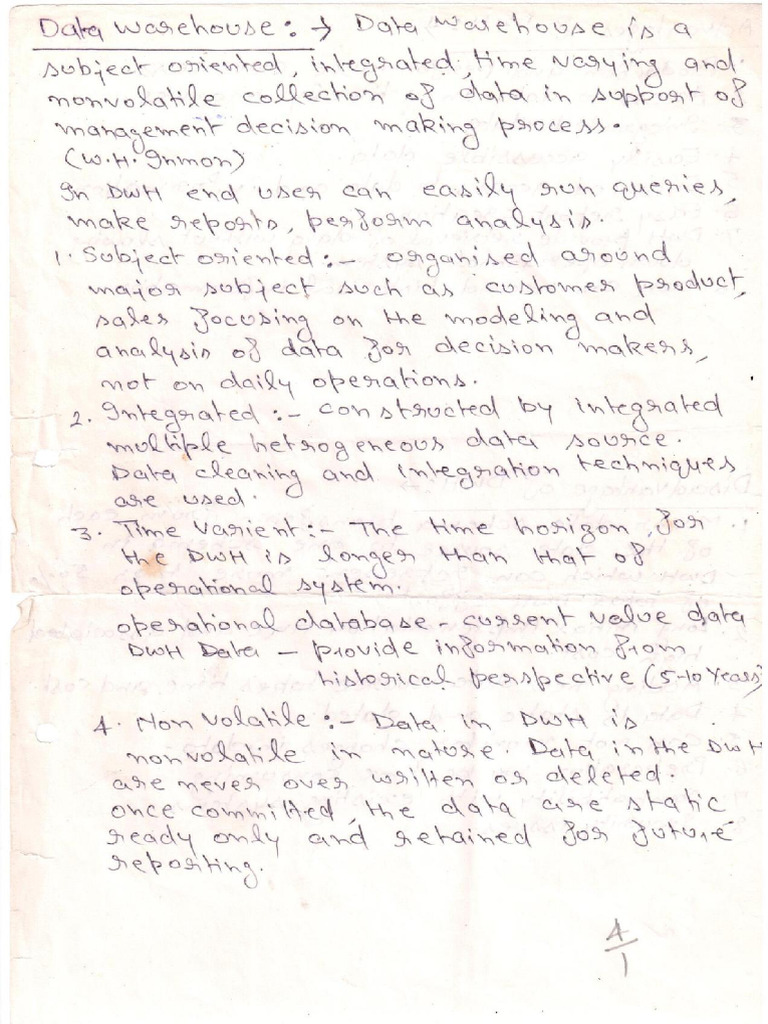 Data warehouse : → Data warehouse is a
subject oriented, integrated, time varying and
nonvolatile collection of data in support of
management decision making process.
(W.H. Inmon)
In DWH end user can easily run queries,
make reports, perform analysis.
1. Subject oriented :- organised around
major subject such as customer product,
sales focusing on the modeling and
analysis of data for decision makers,
not on daily operations.
2. Integrated :- constructed by integrated
multiple hetrogeneous data source.
Data cleaning and integration techniques
are used.
3. Time varient :- The time horizon for
the DWH is longer than that of
operational system.
operational database - current value data
DWH Data - provide information from
historical perspective (5-10 Years)
4. Non volatile :- Data in DWH is
nonvolatile in nature Data in the DWH
are never over written or deleted.
once committed, the data are static
ready only and retained for future
reporting.
4
1